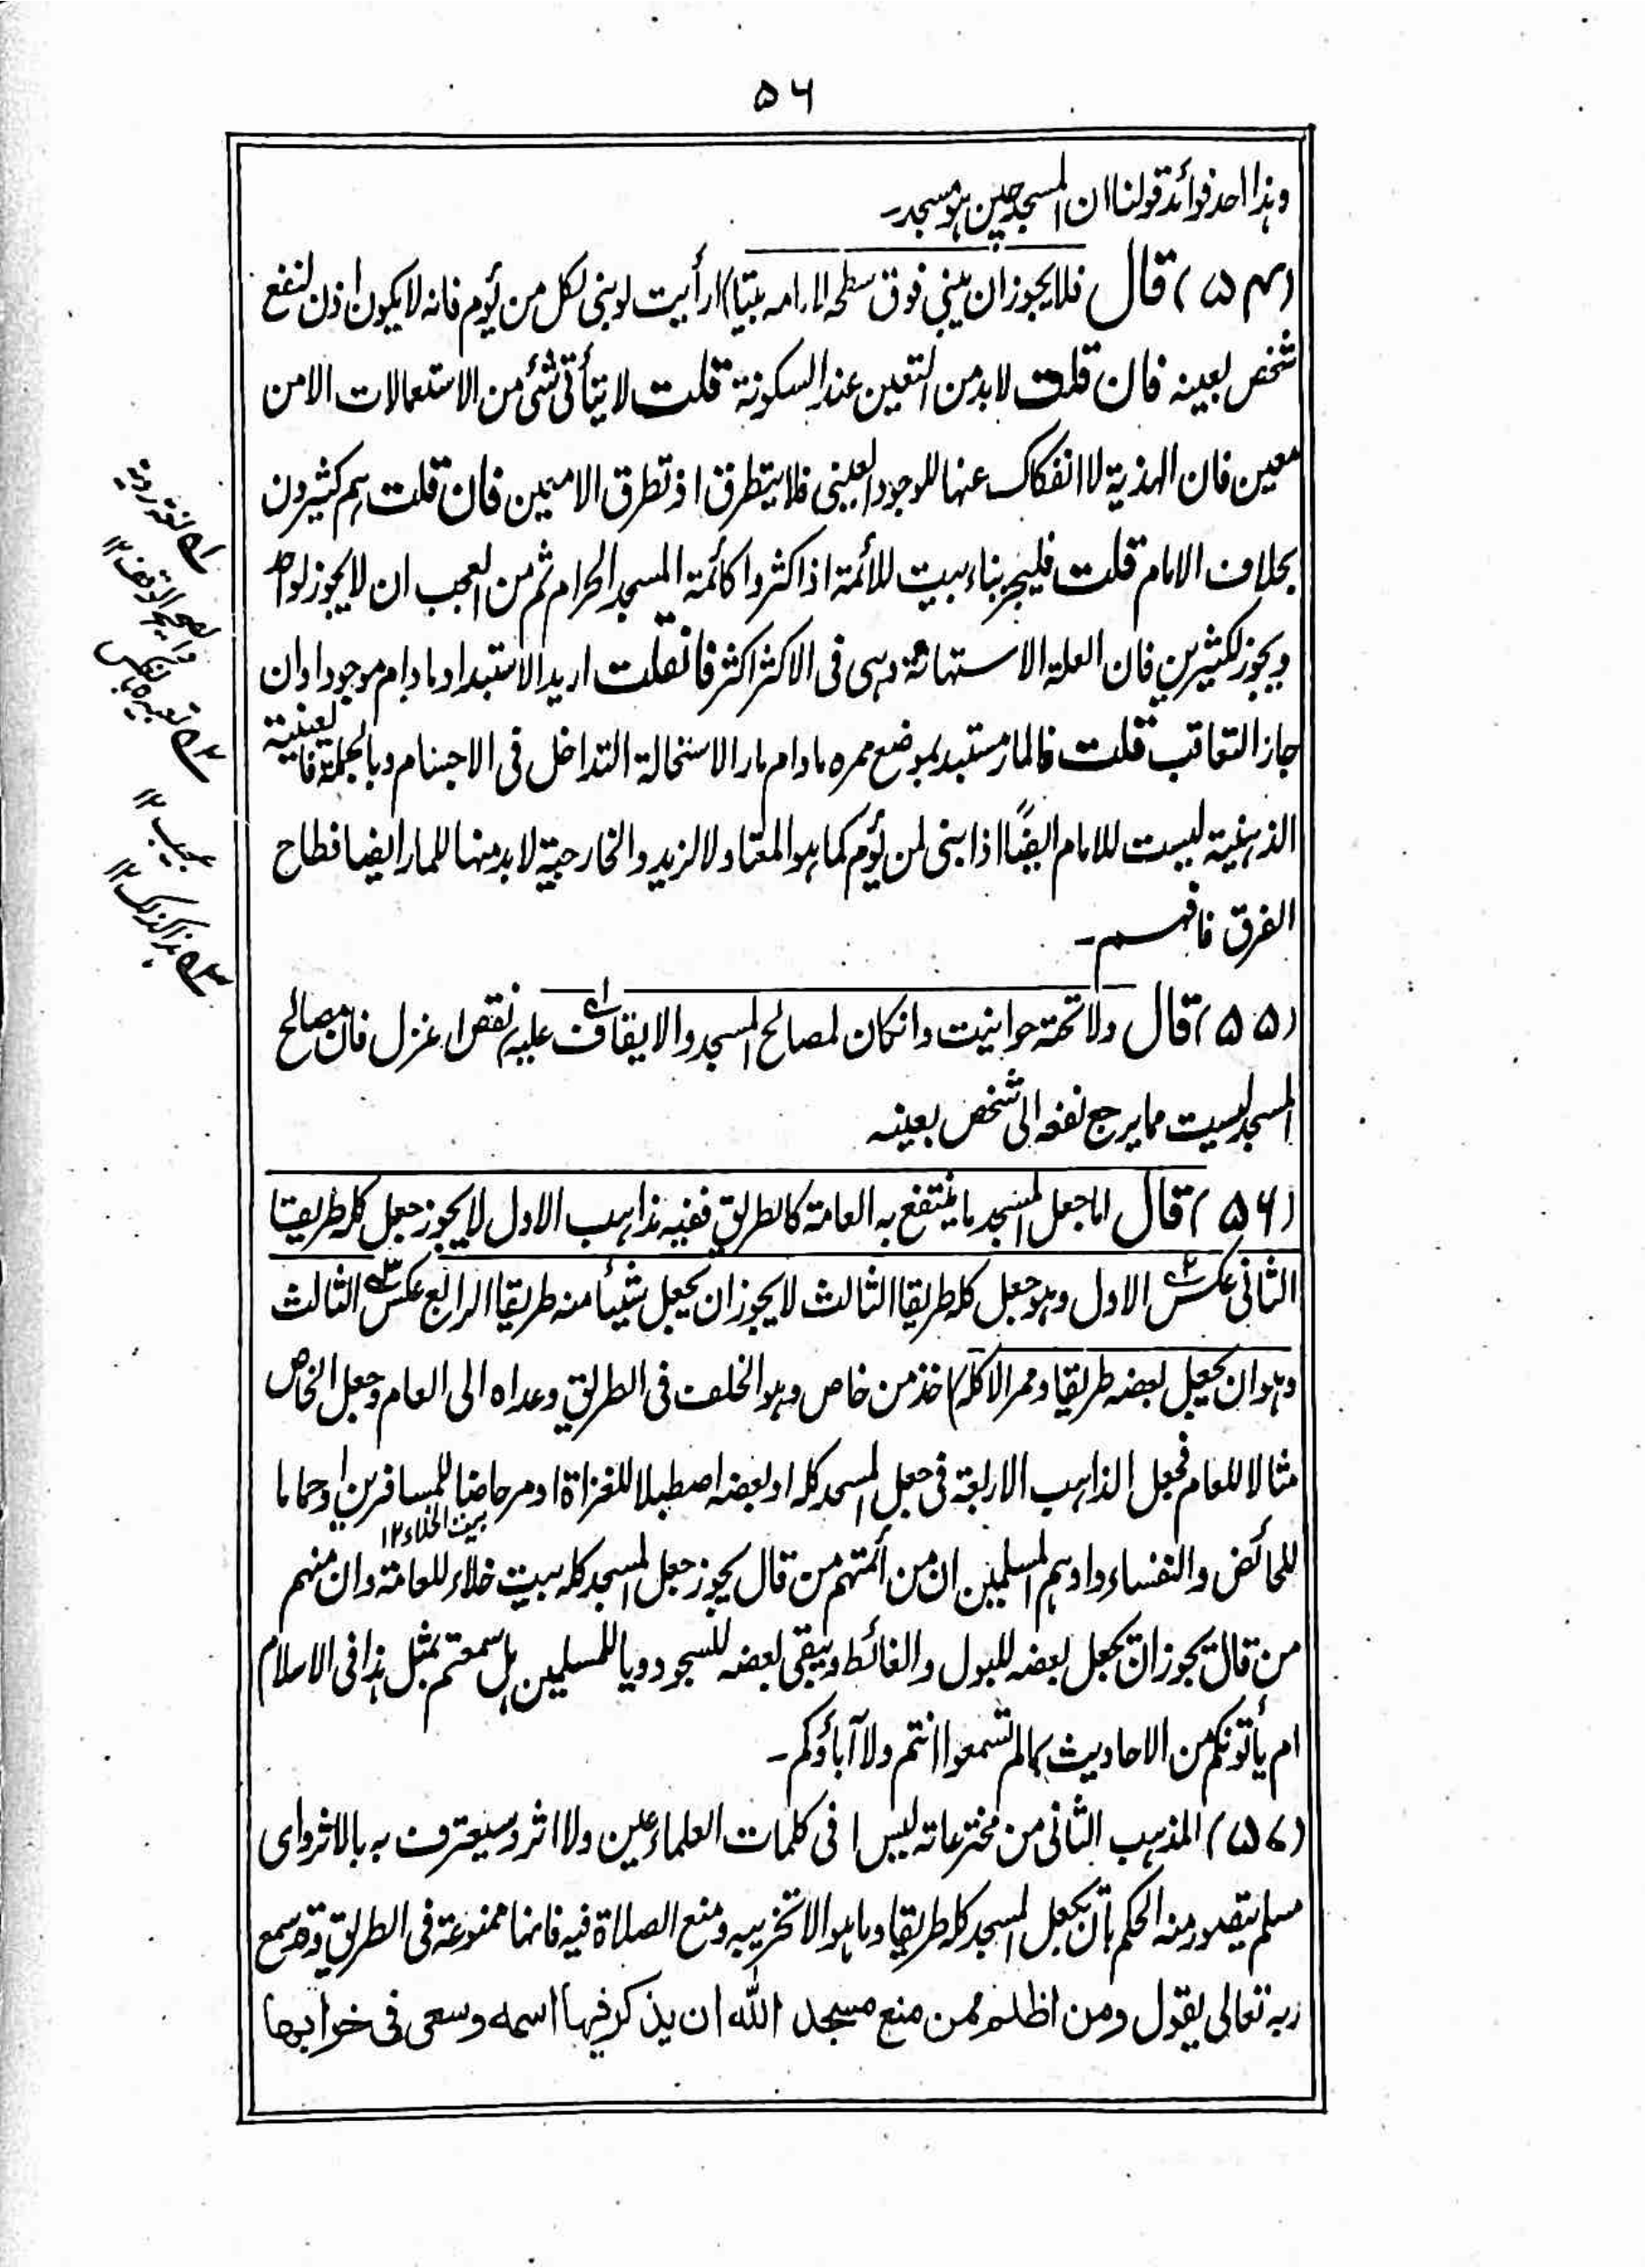 ۵۶
وہذا احد فوائد قولنا ان المسجد حین ہو مسجد۔
(۵۴) قال فلا یجوز ان یبنی فوق سطحہ الامامہ بیتا) ارأیت لو بنی لکل من یؤم فانہ لا یکون اذن لنفع
شخص بعینہ فان قلت لا بد من التعین عند السکونۃ قلت لا یتأتی شئ من الاستعمالات الا من
معین فان الہذیۃ لا انفکاک عنہا للوجود العینی فلا یتطرق اذ تطرق الا معین فان قلت ہم کثیرون
بخلاف الامام قلت فلیجز بناء بیت للأئمۃ اذا کثروا کائمۃ المسجد الحرام ثم من العجب ان لا یجوز لواحد
ویجوز لکثیرین فان العلۃ الاستہانۃ وہی فی الاکثر اکثر فان قلت ارید الاستبداد ما دام موجودا وان
جاز التعاقب قلت فالمار مستبد بموضع ممرہ ما دام مارا لاستحالۃ التداخل فی الاجسام وبالجملۃ فالعینیۃ
الذہنیۃ لیست للامام ایضًا اذا بنی لمن یؤم کما ہو المعتاد لا لزید والخارجیۃ لا بد منہا للمار ایضا فطاح
الفرق فافہم۔
(۵۵) قال ولا تحتہ حوانیت وانکان لمصالح المسجد والایقاف علیہ) نقض ا غزل فان مصالح
المسجد لیست مما یرجع نفعہ الی شخص بعینہ
(۵۶) قال اما جعل المسجد ما ینتفع بہ العامۃ کالطریق ففیہ مذاہب الاول لا یجوز جعل کلہ طریقا
الثانی عکس الاول وہو جعل کلہ طریقا الثالث لا یجوز ان یجعل شیئا منہ طریقا الرابع عکس الثالث
وہو ان یجعل بعضہ طریقا وممرا لا کلہ) اخذ من خاص وہو الخلف فی الطریق وعداہ الی العام وجعل الخاص
مثالا للعام فجعل المذاہب الاربعۃ فی جعل المسجد کلہ او بعضہ اصطبلا للغزاۃ او مرحاضا للمسافرین او حماما
بیت الخلاء ۱۲
للحائض والنفساء واوہم المسلمین ان من ائمتہم من قال یجوز جعل المسجد کلہ بیت خلاء للعامۃ وان منہم
من قال یجوز ان یجعل بعضہ للبول والغائط ویبقی بعضہ للسجود ویا للمسلمین ہل سمعتم بمثل ہذا فی الاسلام
ام یأتونکم من الاحادیث بما لم تسمعوا انتم ولا آباؤکم۔
(۵۷) المذہب الثانی من مخترعاتہ لیس لہ فی کلمات العلماء عین ولا اثر وسیعترف بہ بالاثر وای
مسلم یتصور منہ الحکم بان یجعل المسجد کلہ طریقا وما ہو الا تخریبہ ومنع الصلاۃ فیہ فانہا ممنوعۃ فی الطریق وقد سمع
ربہ تعالی یقول ومن اظلم ممن منع مسجد اللہ ان یذکر فیہا اسمہ وسعی فی خرابہا
الصحیح الوقف ۱۲
عجیب ۱۲
ہذا کذلک ۱۲